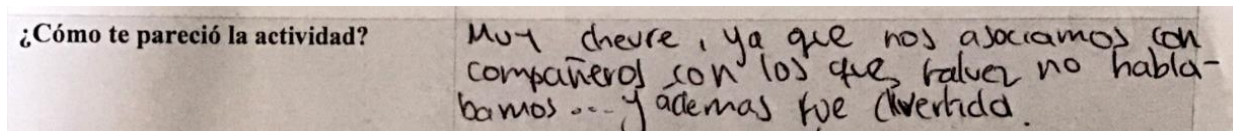 ¿Cómo te pareció la actividad?
Muy chevre, ya que nos asociamos con
compañeros con los que talvez no habla-
bamos... y ademas fue divertida.